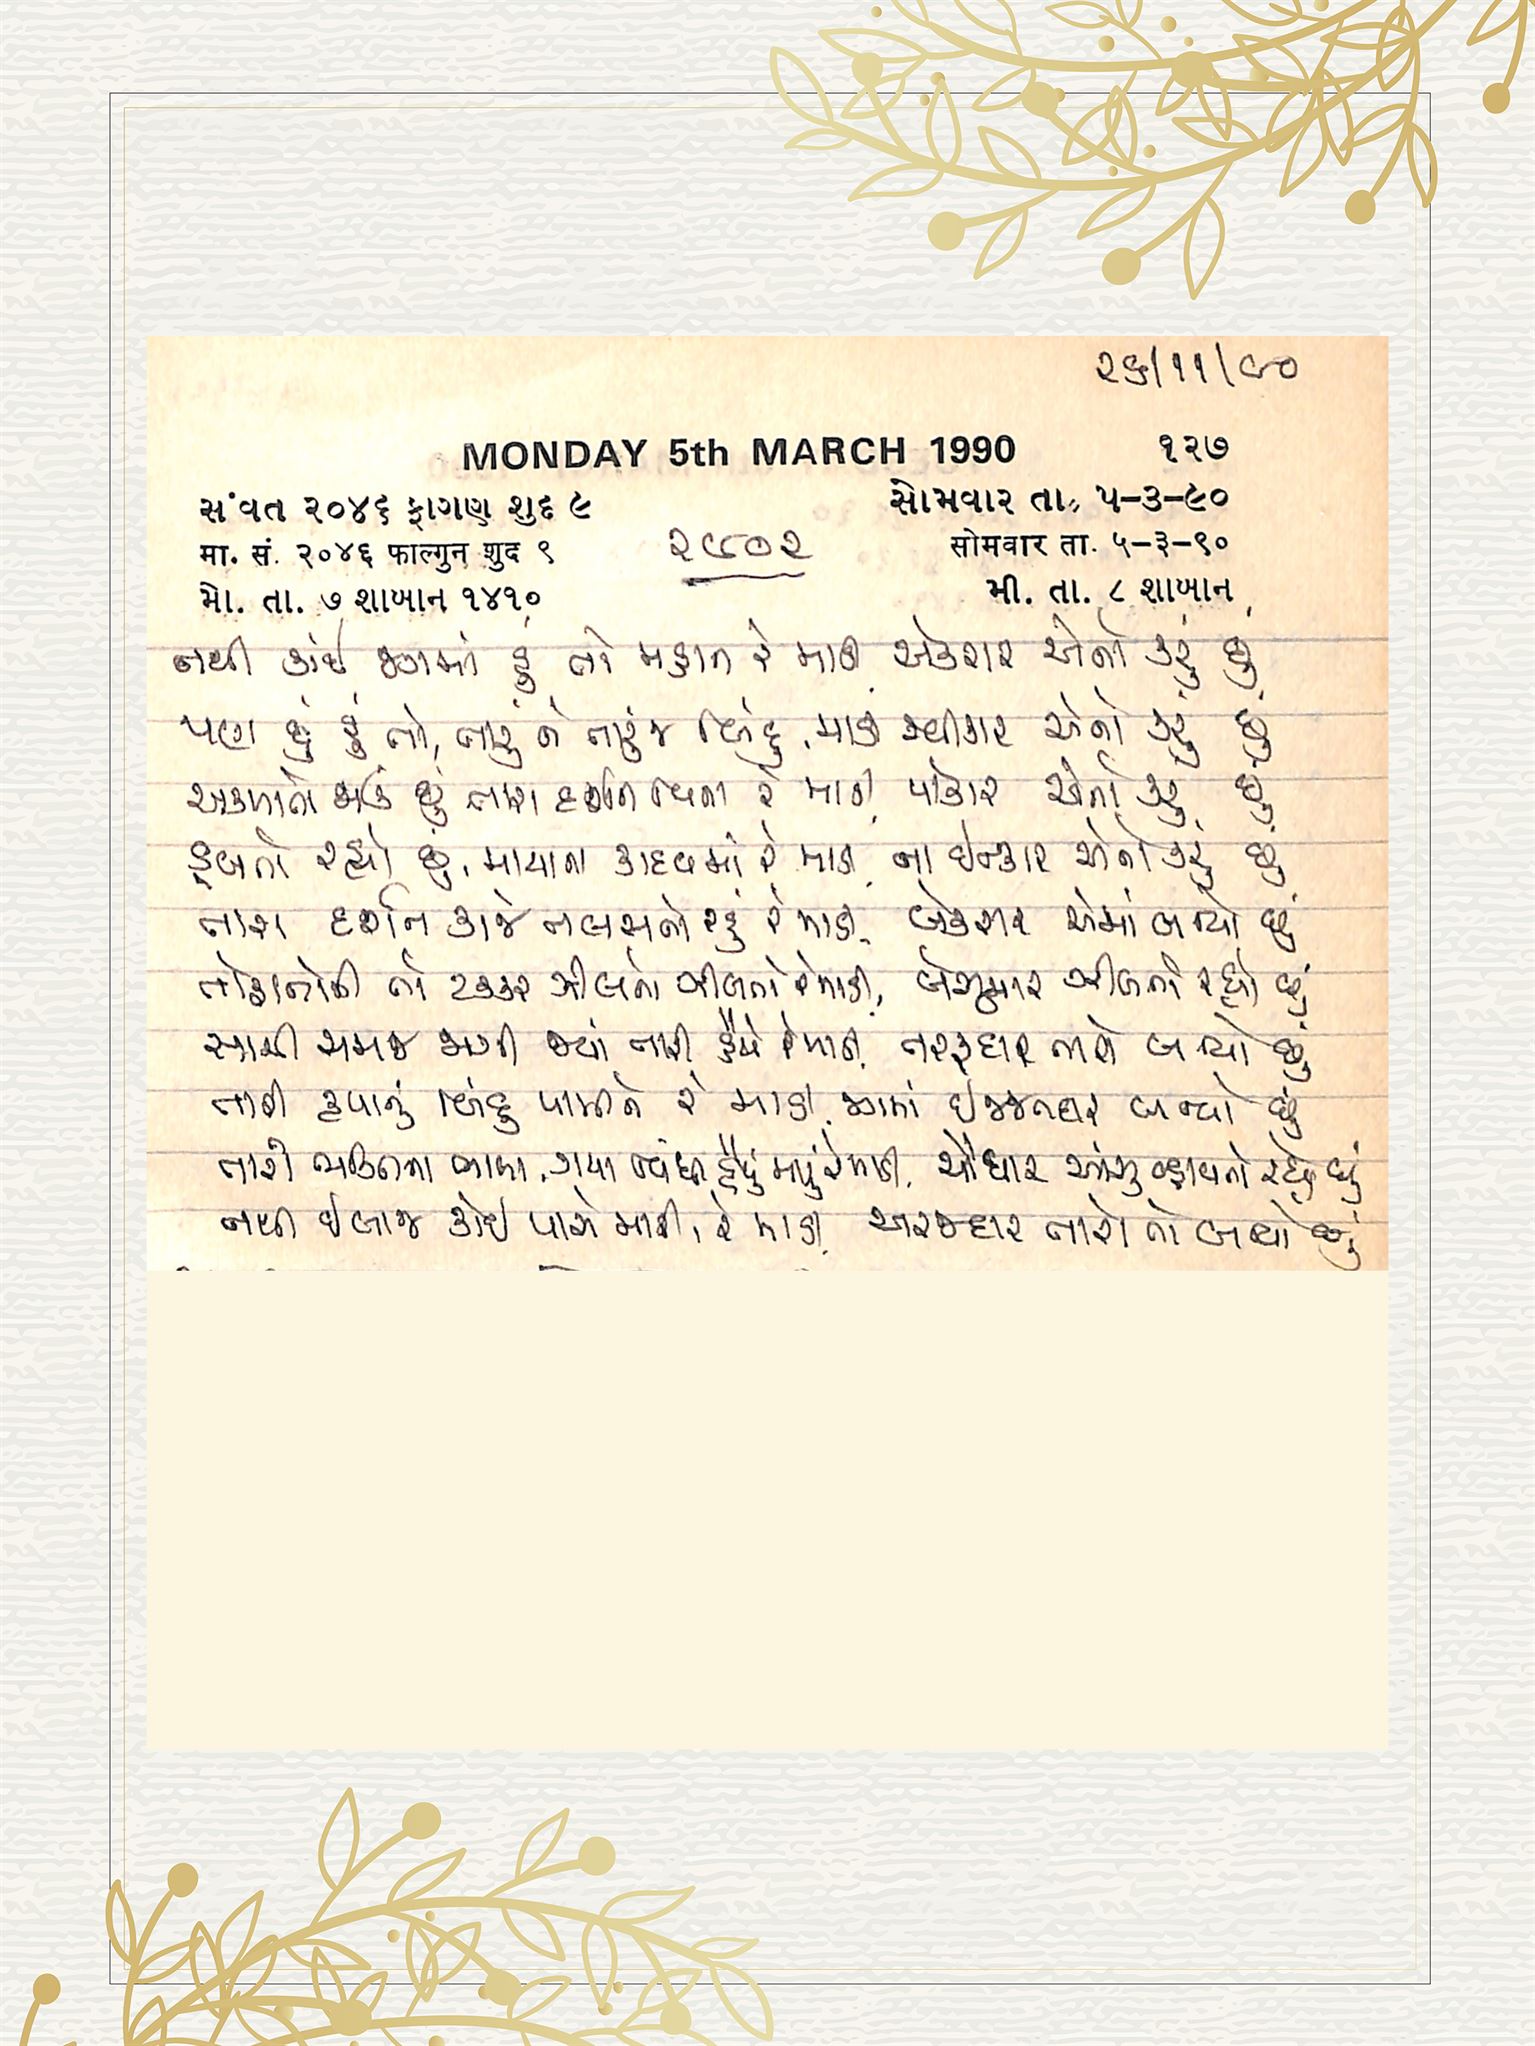 ૨૬/૧૧/૯૦
MONDAY 5th MARCH 1990 ૧૨૭
સંવત ૨૦૪૬ ફાગણ શુદ ૯ સોમવાર તા. ૫-૩-૯૦
मा. सं. २०४६ फाल्गुन शुद ९ सोमवार ता. ५-३-९०
મો. તા. ૭ શાબાન ૧૪૧૦ મી. તા. ૮ શાબાન
૨૯૦૨
નથી કાંઈ જગમાં હું તો મહાન રે માડી, એકરાર એનો કરું છું
પણ છું હું તો, તારું ને તારું જ બિંદુ, માડી સ્વીકાર એનો કરું છું
અકળાતો જાઉં છું તારા દર્શન વિના રે માડી, પોકાર એનો કરું છું
ડૂબતો રહ્યો છું, માયાના કાદવમાં રે માડી, ના ઇન્કાર એનો કરું છું
તારા દર્શન કાજે તલસતો રહું રે માડી, બેકરાર એમાં બન્યો છું
તોફાનોની તો ટક્કર ઝીલતો ઝીલતો રે માડી, બેશુમાર ઝીલતો રહ્યો છું
સાચી સમજ જાગી જ્યાં તારી હૈયે રે માડી, તરફદાર તારો બન્યો છું
તારી કૃપાનું બિંદુ પામીને રે માડી, જગમાં ઇજ્જતદાર બન્યો છું
તારી ભક્તિના ભાવમાં, ગયા જ્યાં હૈયું મારું રે માડી, ચોધાર આંસુ વ્હાવતો રહ્યો છું
નથી ઇલાજ કોઈ પાસે મારી, રે માડી, અરજદાર તારો તો બન્યો છું